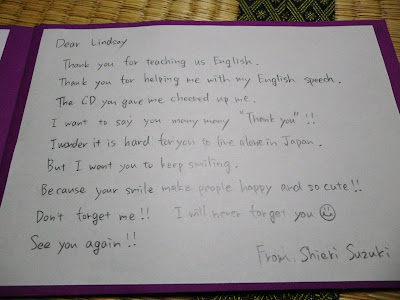 Dear Lindsay
Thank you for teaching us English.
Thank you for helping me with my English speech.
The CD you gave me cheered up me.
I want to say you many many "Thank you"!!
I wonder it is hard for you to live alone in Japan.
But I want you to keep smiling.
Because your smile make people happy and so cute!!
Don't forget me!! I will never forget you
See you again!!
From, Shieri Suzuki